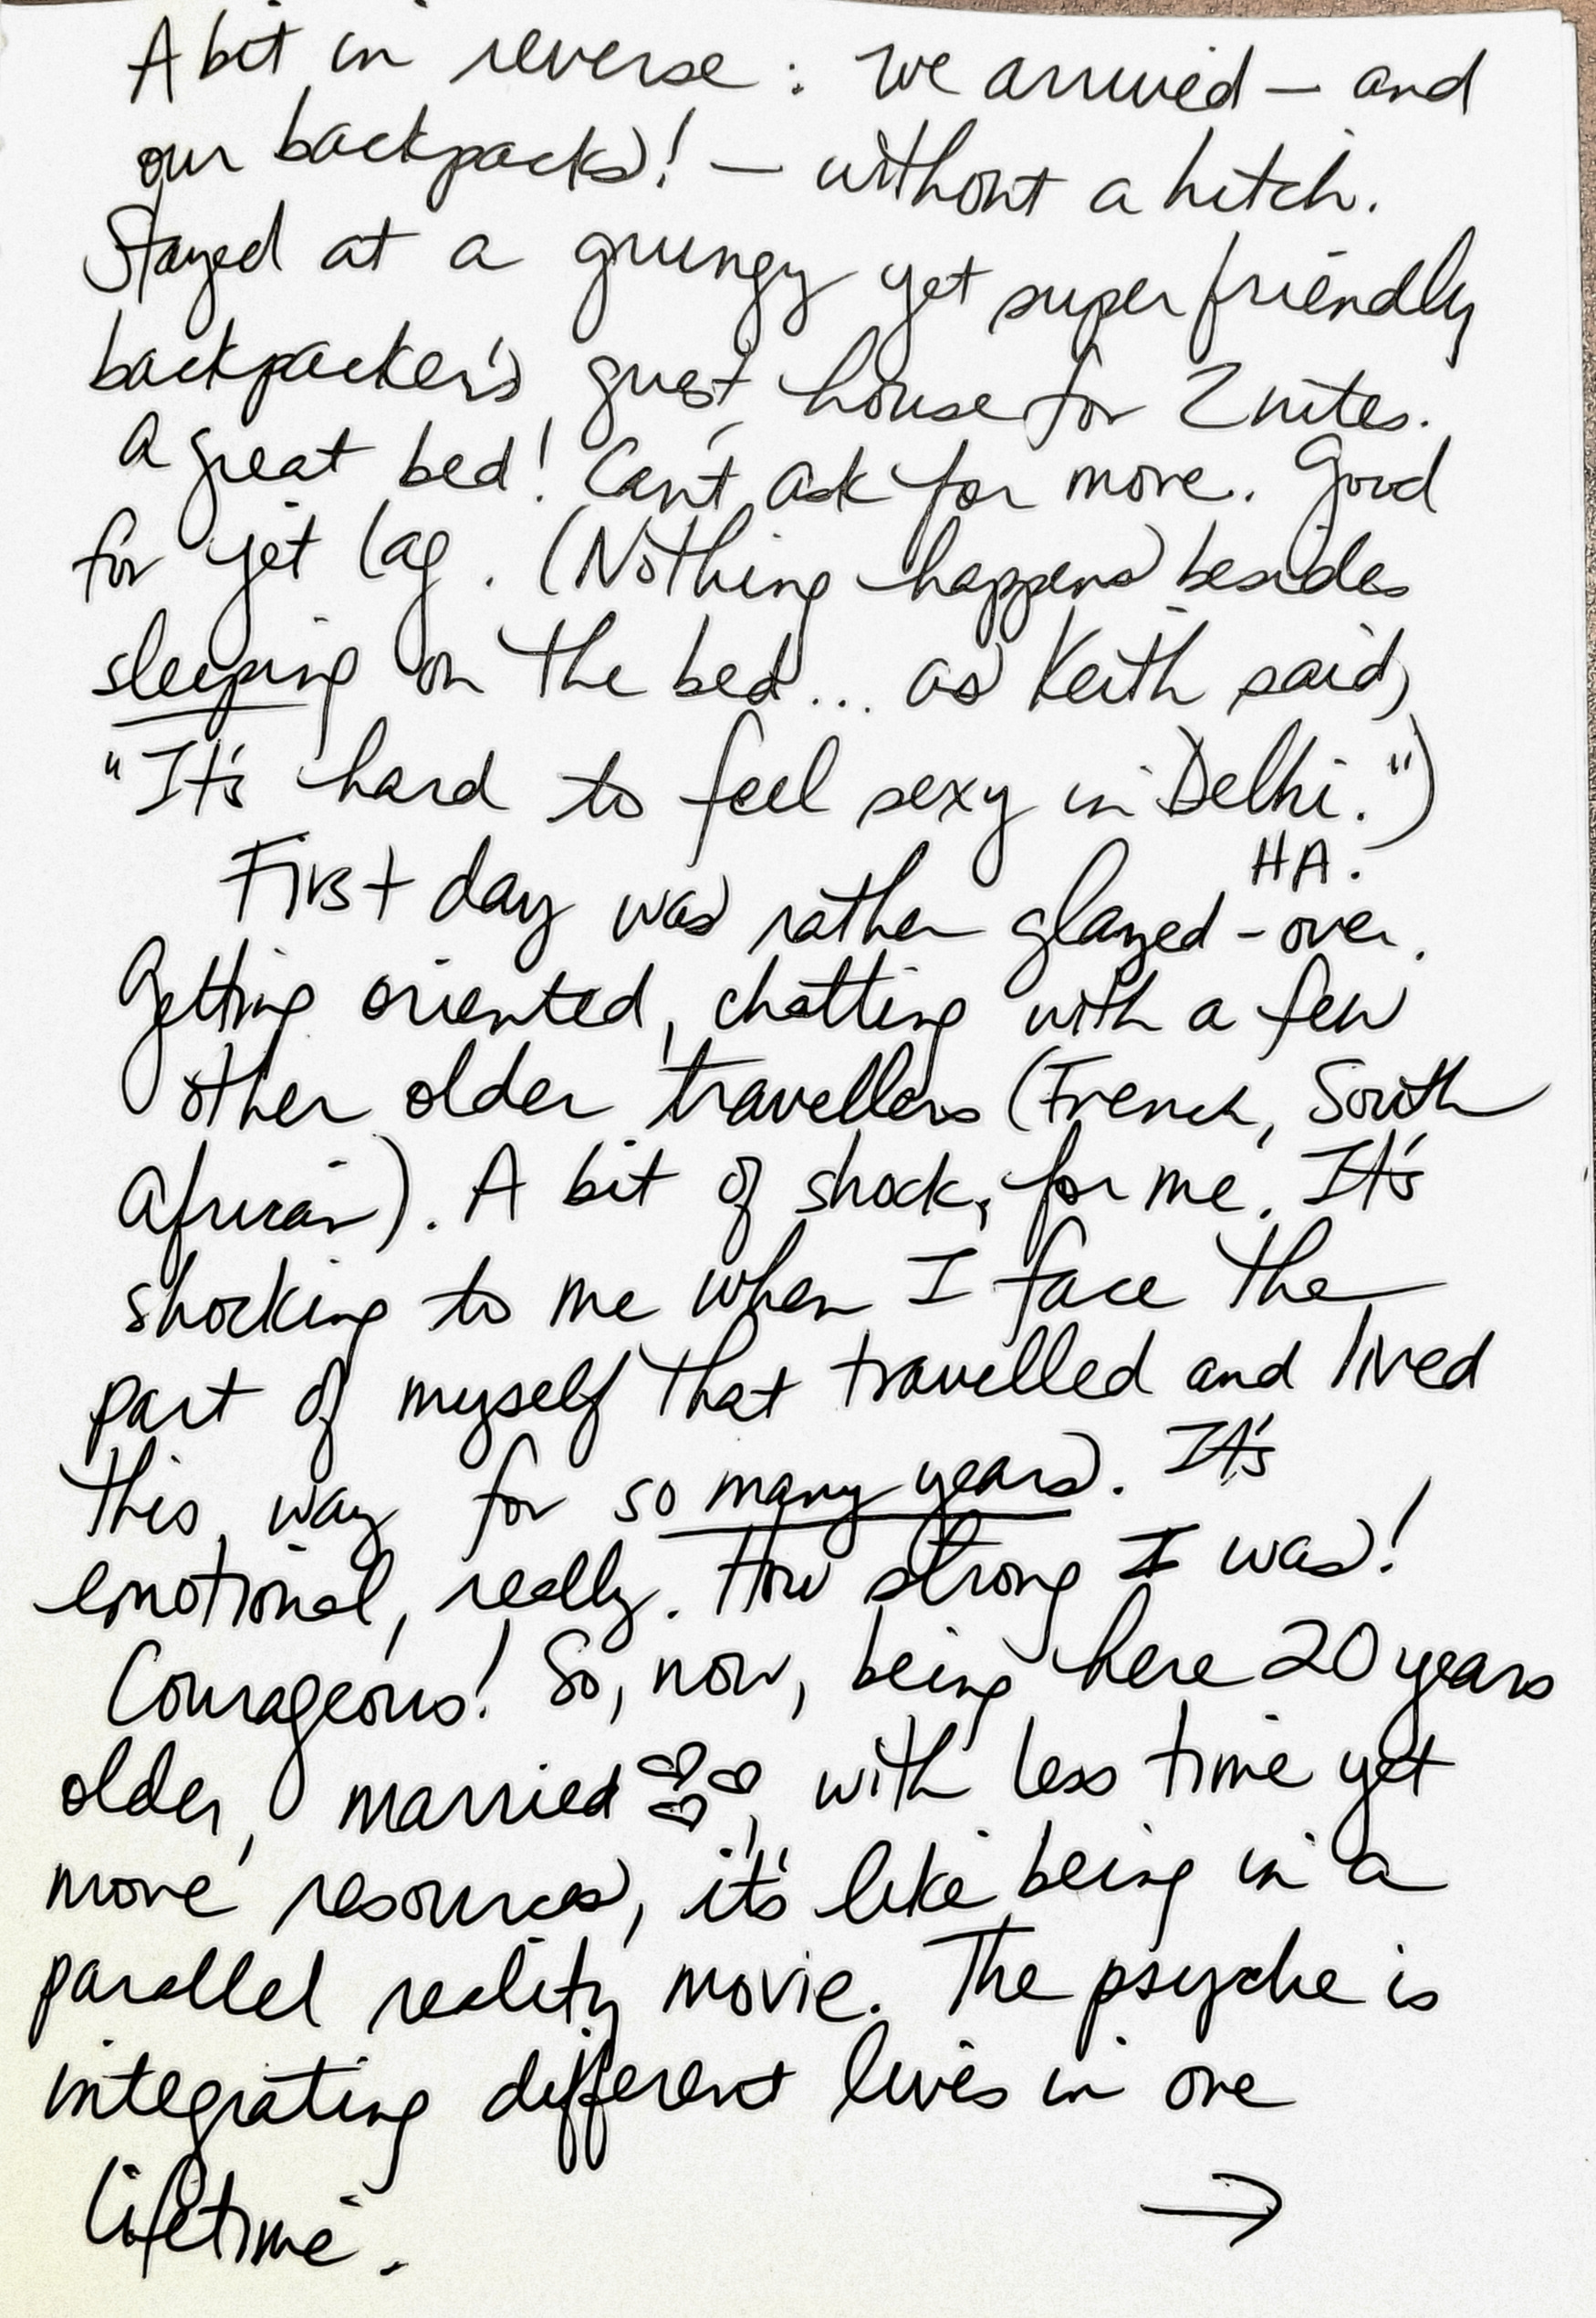 A bit in reverse: We arrived — and
our backpacks! — without a hitch.
Stayed at a grungy yet super friendly
backpacker's guest house for 2 nites.
A great bed! Can't ask for more. Good
for jet lag. (Nothing happens besides
sleeping on the bed... as Keith said,
"It's hard to feel sexy in Delhi.")
HA!
First day was rather glazed-over.
Getting oriented, chatting with a few
other older travellers (French, South
African). A bit of shock, for me. It's
shocking to me when I face the
part of myself that travelled and lived
this way for so many years. It's
emotional, really. How strong I was!
Courageous! So, now, being here 20 years
older, married, with less time yet
more resources, it's like being in a
parallel reality movie. The psyche is
integrating different lives in one
lifetime. →